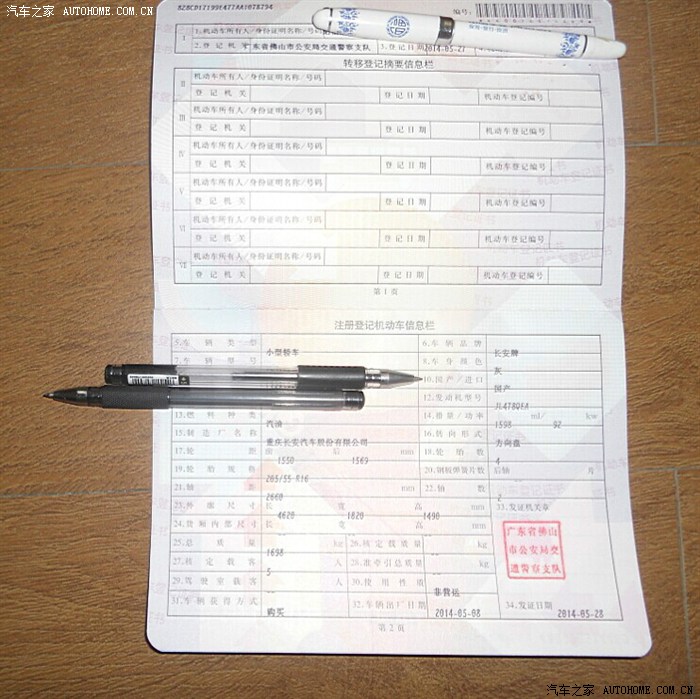 汽车之家 AUTOHOME.COM.CN
编号:
1.机动车所有人/身份证明名称/号码
2.登记机关 广东省佛山市公安局交通警察支队 3.登记日期 2014-05-27
转移登记摘要信息栏
II 机动车所有人/身份证明名称/号码
登记机关 登记日期 机动车登记编号
III 机动车所有人/身份证明名称/号码
登记机关 登记日期 机动车登记编号
IV 机动车所有人/身份证明名称/号码
登记机关 登记日期 机动车登记编号
V 机动车所有人/身份证明名称/号码
登记机关 登记日期 机动车登记编号
VI 机动车所有人/身份证明名称/号码
登记机关 登记日期 机动车登记编号
VII 机动车所有人/身份证明名称/号码
登记机关 登记日期 机动车登记编号
第1页
注册登记机动车信息栏
5.车辆类型 小型轿车 6.车辆品牌 长安牌
7.车辆型号 8.车身颜色 灰
10.国产/进口 国产
12.发动机型号 JL478QEA
13.燃料种类 汽油 14.排量/功率 1598 ml/ 92 kw
15.制造厂名称 重庆长安汽车股份有限公司 16.转向形式 方向盘
17.轮距 前 1550 后 1569 mm 18.轮胎数 4
19.轮胎规格 205/55 R16 20.钢板弹簧片数 后轴 片
21.轴距 2660 mm 22.轴数 2
23.外廓尺寸 长 4620 宽 1820 高 1490 mm 33.发证机关章
24.货厢内部尺寸 长 宽 高 mm
25.总质量 1698 kg 26.核定载质量 kg
27.核定载客 5 人 28.准牵引总质量 kg
29.驾驶室载客 人 30.使用性质 非营运
31.车辆获得方式 购买 32.车辆出厂日期 2014-05-08 34.发证日期 2014-05-28
广东省佛山
市公安局交
通警察支队
第2页
汽车之家 AUTOHOME.COM.CN